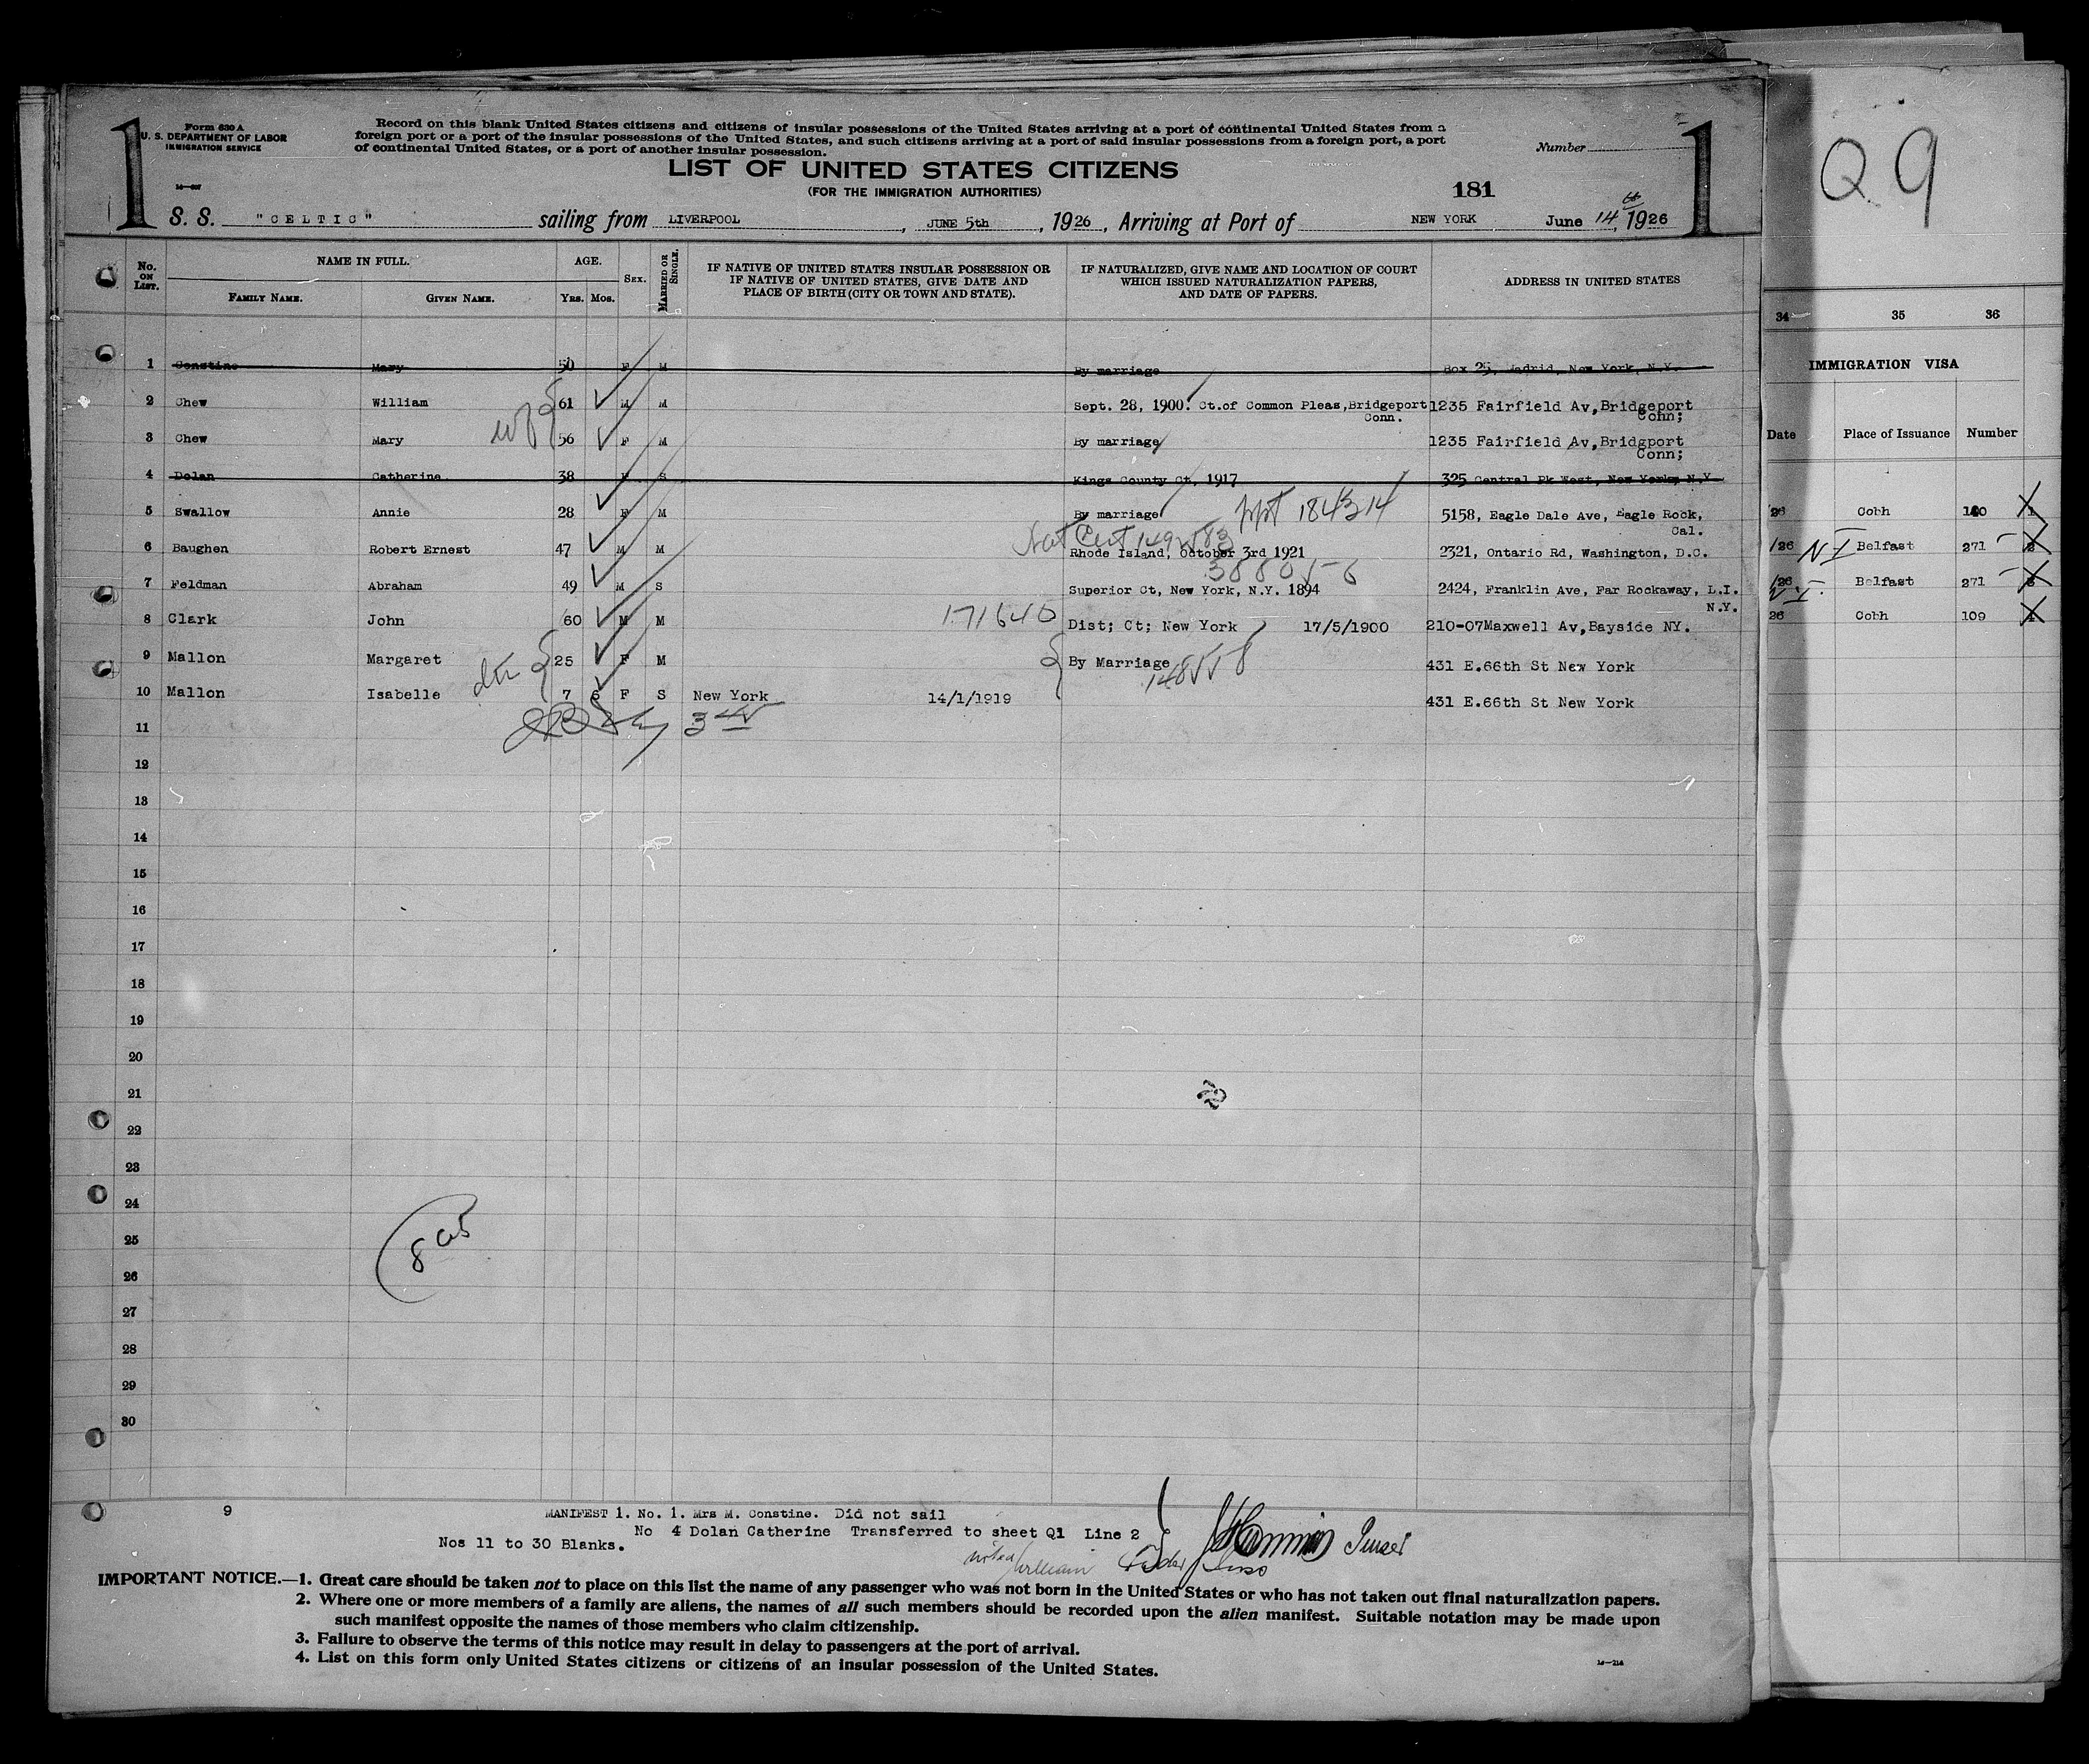 1
Form 630 A
U. S. DEPARTMENT OF LABOR
IMMIGRATION SERVICE
Record on this blank United States citizens and citizens of insular possessions of the United States arriving at a port of continental United States from a
foreign port or a port of the insular possessions of the United States, and such citizens arriving at a port of said insular possessions from a foreign port, a port
of continental United States, or a port of another insular possession.
Number
1
LIST OF UNITED STATES CITIZENS
(FOR THE IMMIGRATION AUTHORITIES)
181
S. S. "CELTIC" sailing from LIVERPOOL, JUNE 5th, 1926, Arriving at Port of NEW YORK June 14, 1926
No. ON LIST.
NAME IN FULL.
FAMILY NAME. GIVEN NAME.
AGE.
Yrs. Mos.
SEX.
MARRIED OR SINGLE.
IF NATIVE OF UNITED STATES INSULAR POSSESSION OR
IF NATIVE OF UNITED STATES, GIVE DATE AND
PLACE OF BIRTH (CITY OR TOWN AND STATE).
IF NATURALIZED, GIVE NAME AND LOCATION OF COURT
WHICH ISSUED NATURALIZATION PAPERS,
AND DATE OF PAPERS.
ADDRESS IN UNITED STATES
1 Constine Mary 50 F M By marriage Box 25, Madrid, New York, N.Y.
2 Chew William 61 M M Sept. 28, 1900. Ct.of Common Pleas,Bridgeport 1235 Fairfield Av,Bridgeport
Conn. Conn;
wf
3 Chew Mary 56 F M By marriage 1235 Fairfield Av,Bridgport
Conn;
4 Dolan Catherine 38 F S Kings County Ct, 1917 325 Central Pk West, New York, N.Y.
5 Swallow Annie 28 F M By marriage ppt 184314 5158, Eagle Dale Ave, Eagle Rock,
Cal.
Nat Cert
6 Baughen Robert Ernest 47 M M Rhode Island, October 3rd 1921 2321, Ontario Rd, Washington, D.C.
7 Feldman Abraham 49 M S Superior Ct, New York, N.Y. 1894 2424, Franklin Ave, Far Rockaway, L.I.
N.Y.
8 Clark John 60 M M 171640 Dist; Ct; New York 17/5/1900 210-07Maxwell Av,Bayside NY.
9 Mallon Margaret 25 F M By Marriage 431 E.66th St New York
10 Mallon Isabelle 7 6 F S New York 14/1/1919 431 E.66th St New York
11
12
13
14
15
16
17
18
19
20
21
22
23
24
25
26
27
28
29
30
9
MANIFEST 1. No. 1. Mrs M. Constine. Did not sail
No 4 Dolan Catherine Transferred to sheet Q1 Line 2
Nos 11 to 30 Blanks.
Purser
IMPORTANT NOTICE.—1. Great care should be taken not to place on this list the name of any passenger who was not born in the United States or who has not taken out final naturalization papers.
2. Where one or more members of a family are aliens, the names of all such members should be recorded upon the alien manifest. Suitable notation may be made upon
such manifest opposite the names of those members who claim citizenship.
3. Failure to observe the terms of this notice may result in delay to passengers at the port of arrival.
4. List on this form only United States citizens or citizens of an insular possession of the United States.
Q9
34 35 36
IMMIGRATION VISA
Date Place of Issuance Number
26 Cobh
/26 N I Belfast 271
/26 Belfast 271
26 Cobh 109